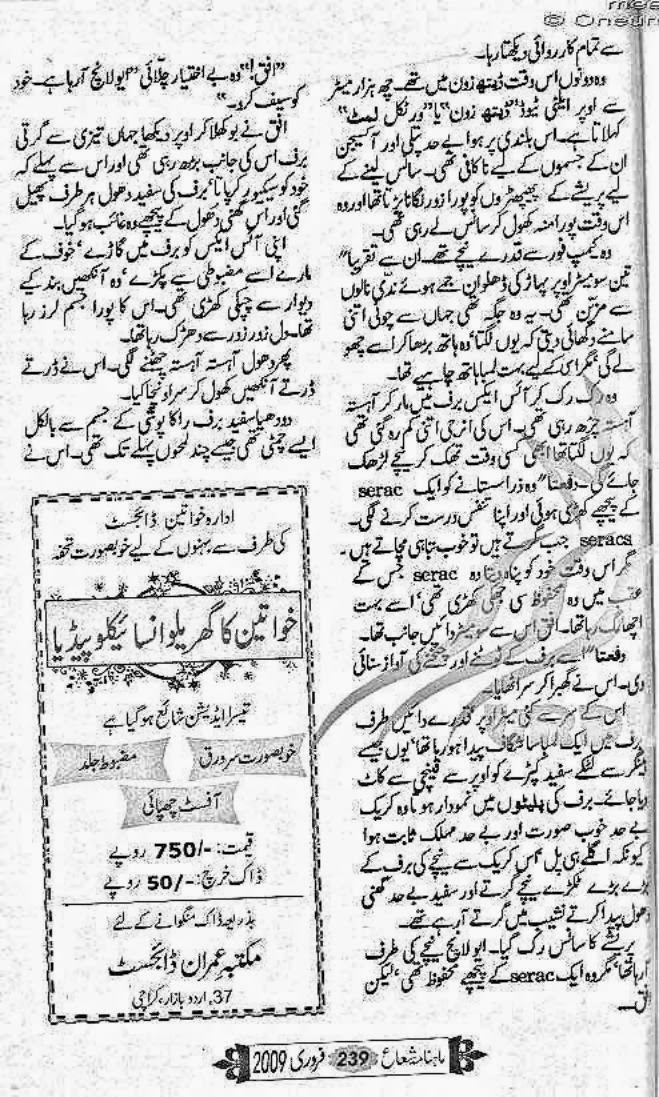 سے تمام کارروائی دیکھتا رہا۔
وہ دونوں اس وقت ڈیتھ زون میں تھے۔ چھ ہزار میٹر
سے اوپر ایلٹی ٹیوڈ "ڈیتھ زون" یا "ورٹکل لمٹ"
کہلاتا ہے۔ اس بلندی پر ہوا بے حد پتلی اور آکسیجن
ان کے جسموں کے لیے ناکافی تھی۔ سانس لینے کے
لیے پریشے کے پھیپھڑوں کو پورا زور لگانا پڑتا تھا اور وہ
اس وقت پورا منہ کھول کر سانس لے رہی تھی۔
وہ کیمپ فور سے قدرے نیچے تھے۔ ان سے تقریبا"
تین سو میٹر اوپر پہاڑ کی ڈھلوان جمے ہوئے ندی نالوں
سے مزین تھی۔ یہ وہ جگہ تھی جہاں سے چوٹی اتنی
سامنے دکھائی دیتی کہ یوں لگتا' وہ ہاتھ بڑھا کر اسے چھو
لے گی مگر اس کے لیے بہت لمبا ہاتھ چاہیے تھا۔
وہ رک رک کر آئس ایکس برف میں مار کر آہستہ
آہستہ چڑھ رہی تھی۔ اس کی انرجی اتنی کم رہ گئی تھی
کہ یوں لگتا تھا ابھی کسی وقت تھک کر نیچے لڑھک
جائے گی۔ دفعتا" وہ ذرا سستانے کو ایک serac
کے پیچھے کھڑی ہوئی اور اپنا تنفس درست کرنے لگی۔
seracs جب گرتے ہیں تو خوب تباہی مچاتے ہیں۔
مگر اس وقت خود کو پناہ دیتا وہ serac جس کے
عقب میں وہ محفوظ سی چھپی کھڑی تھی' اسے بہت
اچھا لگ رہا تھا۔ افق اس سے سو میٹر دائیں جانب تھا۔
دفعتا" اسے برف کے ٹوٹنے اور چٹخنے کی آواز سنائی
دی۔ اس نے گھبرا کر سر اٹھایا۔
اس کے سر سے کئی میٹر اوپر قدرے دائیں طرف
برف میں ایک لمبا سا شگاف پیدا ہو رہا تھا' یوں جیسے
ہینگر سے لٹکے سفید کپڑے کو اوپر سے قینچی سے کاٹ
دیا جائے۔ برف کی پلیٹوں میں نمودار ہوتا وہ کریک
بے حد خوب صورت اور بے حد مہلک ثابت ہوا
کیونکہ اگلے ہی پل' اس کریک سے نیچے کی برف کے
بڑے بڑے ٹکڑے نیچے گرتے اور سفید بے حد گھنی
دھول پیدا کرتے نشیب میں گرتے آ رہے تھے۔
پریشے کا سانس رک گیا۔ ایولانچ نیچے کی طرف
آ رہا تھا' مگر وہ ایک serac کے پیچھے محفوظ تھی' لیکن
افق۔۔۔
"افق!" وہ بے اختیار چلّائی "ایولانچ آ رہا ہے۔ خود
کو سیف کرو۔"
افق نے بوکھلا کر اوپر دیکھا جہاں تیزی سے گرتی
برف اس کی جانب بڑھ رہی تھی اور اس سے پہلے کہ
خود کو سیکیور کر پاتا' برف کی سفید دھول ہر طرف پھیل
گئی اور اس گھنی دھول کے پیچھے وہ غائب ہو گیا۔
اپنی آئس ایکس کو برف میں گاڑے' خوف کے
مارے اسے مضبوطی سے پکڑے' وہ آنکھیں بند کیے
دیوار سے چپکی کھڑی تھی۔ اس کا پورا جسم لرز رہا
تھا۔ دل زور زور سے دھڑک رہا تھا۔
پھر دھول آہستہ آہستہ چھٹنے لگی۔ اس نے ڈرتے
ڈرتے آنکھیں کھول کر سر اونچا کیا۔
دودھیا سفید برف راکاپوشی کے جسم سے بالکل
ایسے چمٹی تھی جیسے چند لمحوں پہلے تک تھی۔ اس نے
ادارہ خواتین ڈائجسٹ
کی طرف سے بہنوں کے لیے خوبصورت تحفہ
خواتین کا گھریلو انسائیکلو پیڈیا
تیسرا ایڈیشن شائع ہو گیا ہے
خوبصورت سرورق
مضبوط جلد
آفسٹ چھپائی
قیمت: -/750 روپے
ڈاک خرچ: -/50 روپے
بذریعہ ڈاک منگوانے کے لئے
مکتبہ عمران ڈائجسٹ
37, اردو بازار، کراچی
ماہنامہ شعاع 239 فروری 2009